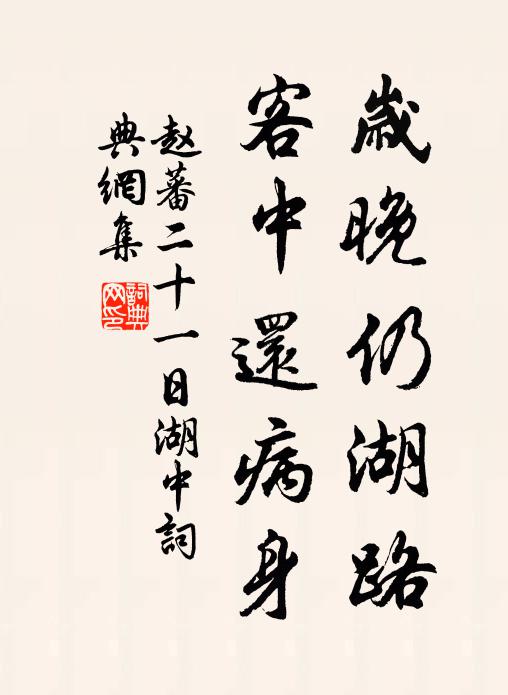 歲晚仍湖路
客中還病身
赵蕃二十一日湖中詞
典網集
詞典
网印